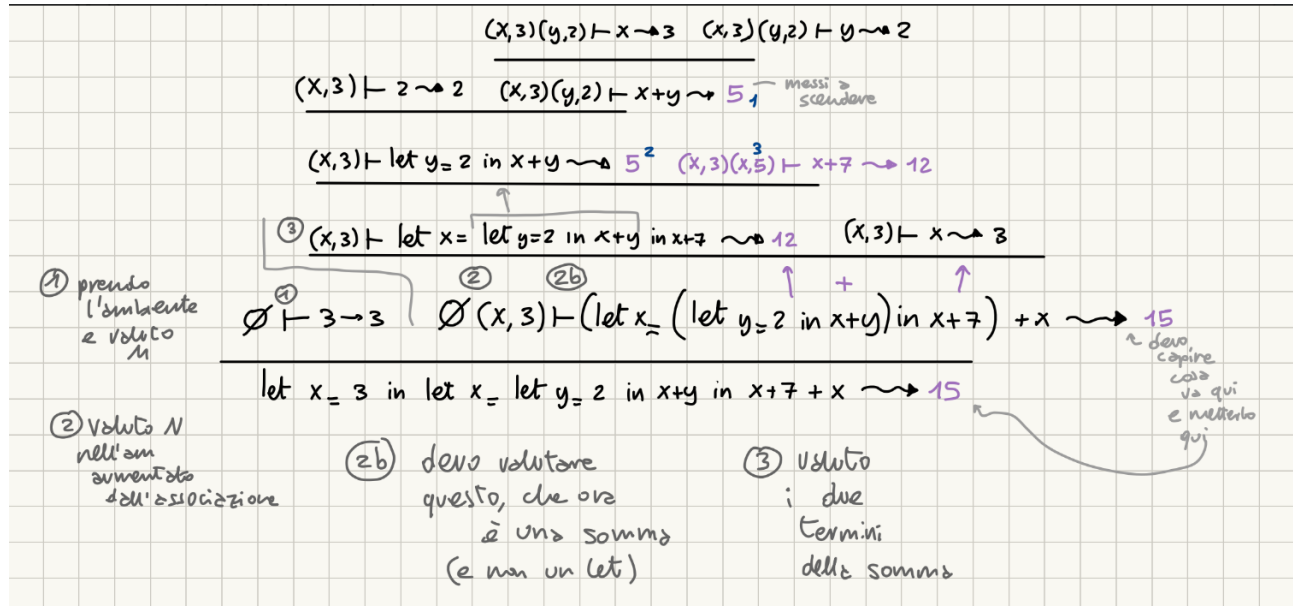 (x,3)(y,2) ⊢ x ⇝ 3   (x,3)(y,2) ⊢ y ⇝ 2
(x,3) ⊢ 2 ⇝ 2   (x,3)(y,2) ⊢ x+y ⇝ 5 1   messi a
scendere
(x,3) ⊢ let y=2 in x+y ⇝ 5 2   (x,3)(x,5) 3 ⊢ x+7 ⇝ 12
③ (x,3) ⊢ let x= let y=2 in x+y in x+7 ⇝ 12   (x,3) ⊢ x ⇝ 3
② 2b +
① prendo
l'ambiente
e valuto
M
①
∅ ⊢ 3 → 3   ∅ (x,3) ⊢ (let x= (let y=2 in x+y) in x+7) + x ⇝ 15
devo
capire
cosa
va qui
e metterlo
qui
let x= 3 in let x= let y=2 in x+y in x+7 + x ⇝ 15
② valuto N
nell'am
aumentato
dall'associazione
2b devo valutare
questo, che ora
è una somma
(e non un let)
③ valuto
i due
termini
della somma